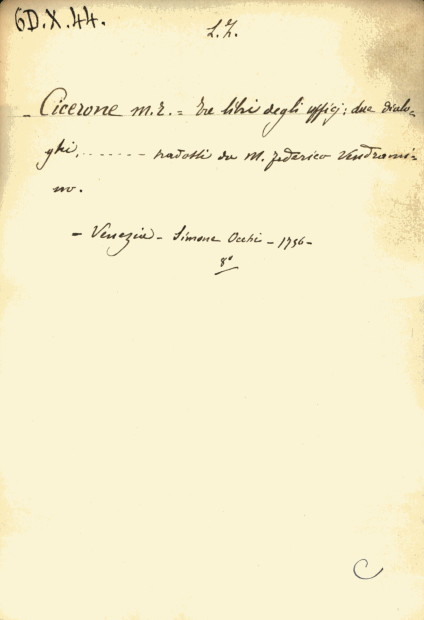 6D.X.44.
L.Z.
- Cicerone M.T. = Tre libri degli ufficj; due dialo-
ghi, ....... tradotti da M. Federico Vendrami-
no.
- Venezia - Simone Occhi - 1756 -
8°
C